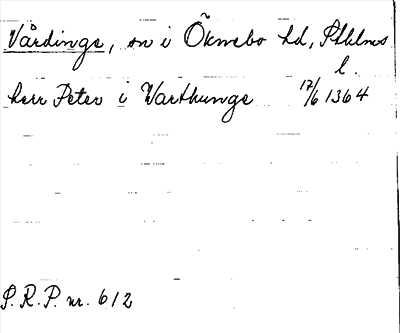 Vårdinge, sn i Öknebo hd, Sthlms
l.
herr Peter i Warthunge 17/6 1364
S. R. P. nr. 612